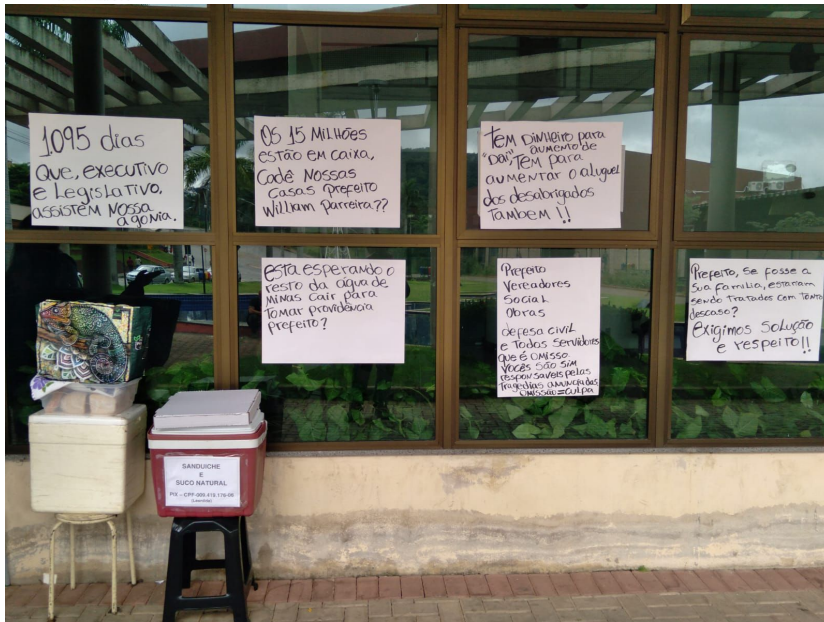 1.095 dias
Que, executivo
e Legislativo,
assistem Nossa
agonia.
OS 15 MILHÕES
ESTÃO EM CAIXA,
Cadê NOSSAS
CASAS prefeito
William Parreira??
TEM DINHEIRO para
aumento de
"DAI", TEM PARA
aumentar o aluguel
dos desabrigados
Também !!
ESTÁ esperando o
resto da água de
Minas cair para
Tomar providência
prefeito?
Prefeito
Vereadores
Social
Obras
defesa civil
e Todos servidores
que é omisso
Vocês são sim
responsáveis pelas
Tragédias anunciadas
OMISSÃO = culpa
Prefeito, se fosse a
sua família, estariam
sendo tratados com tanto
descaso?
Exigimos Solução
e respeito!!
SANDUICHE
E
SUCO NATURAL
PIX – CPF-